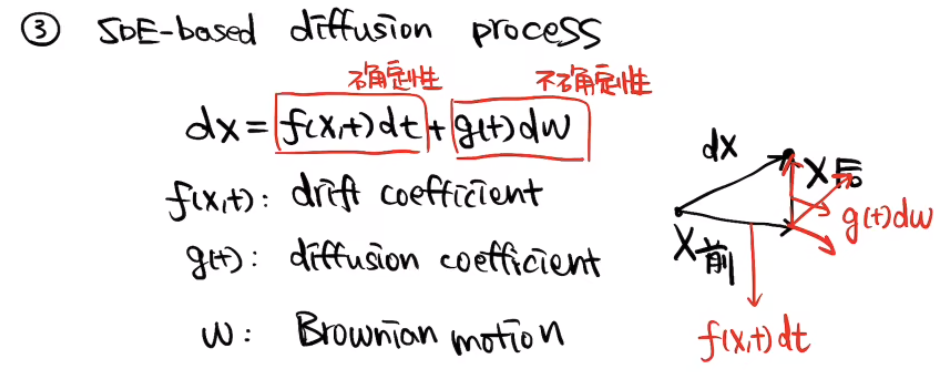 ③ SDE-based diffusion process
确定性 不确定性
dx = f(x,t)dt + g(t)dw
f(x,t): drift coefficient
g(t): diffusion coefficient
w: Brownian motion
dx
X后
g(t)dw
X前
f(x,t)dt